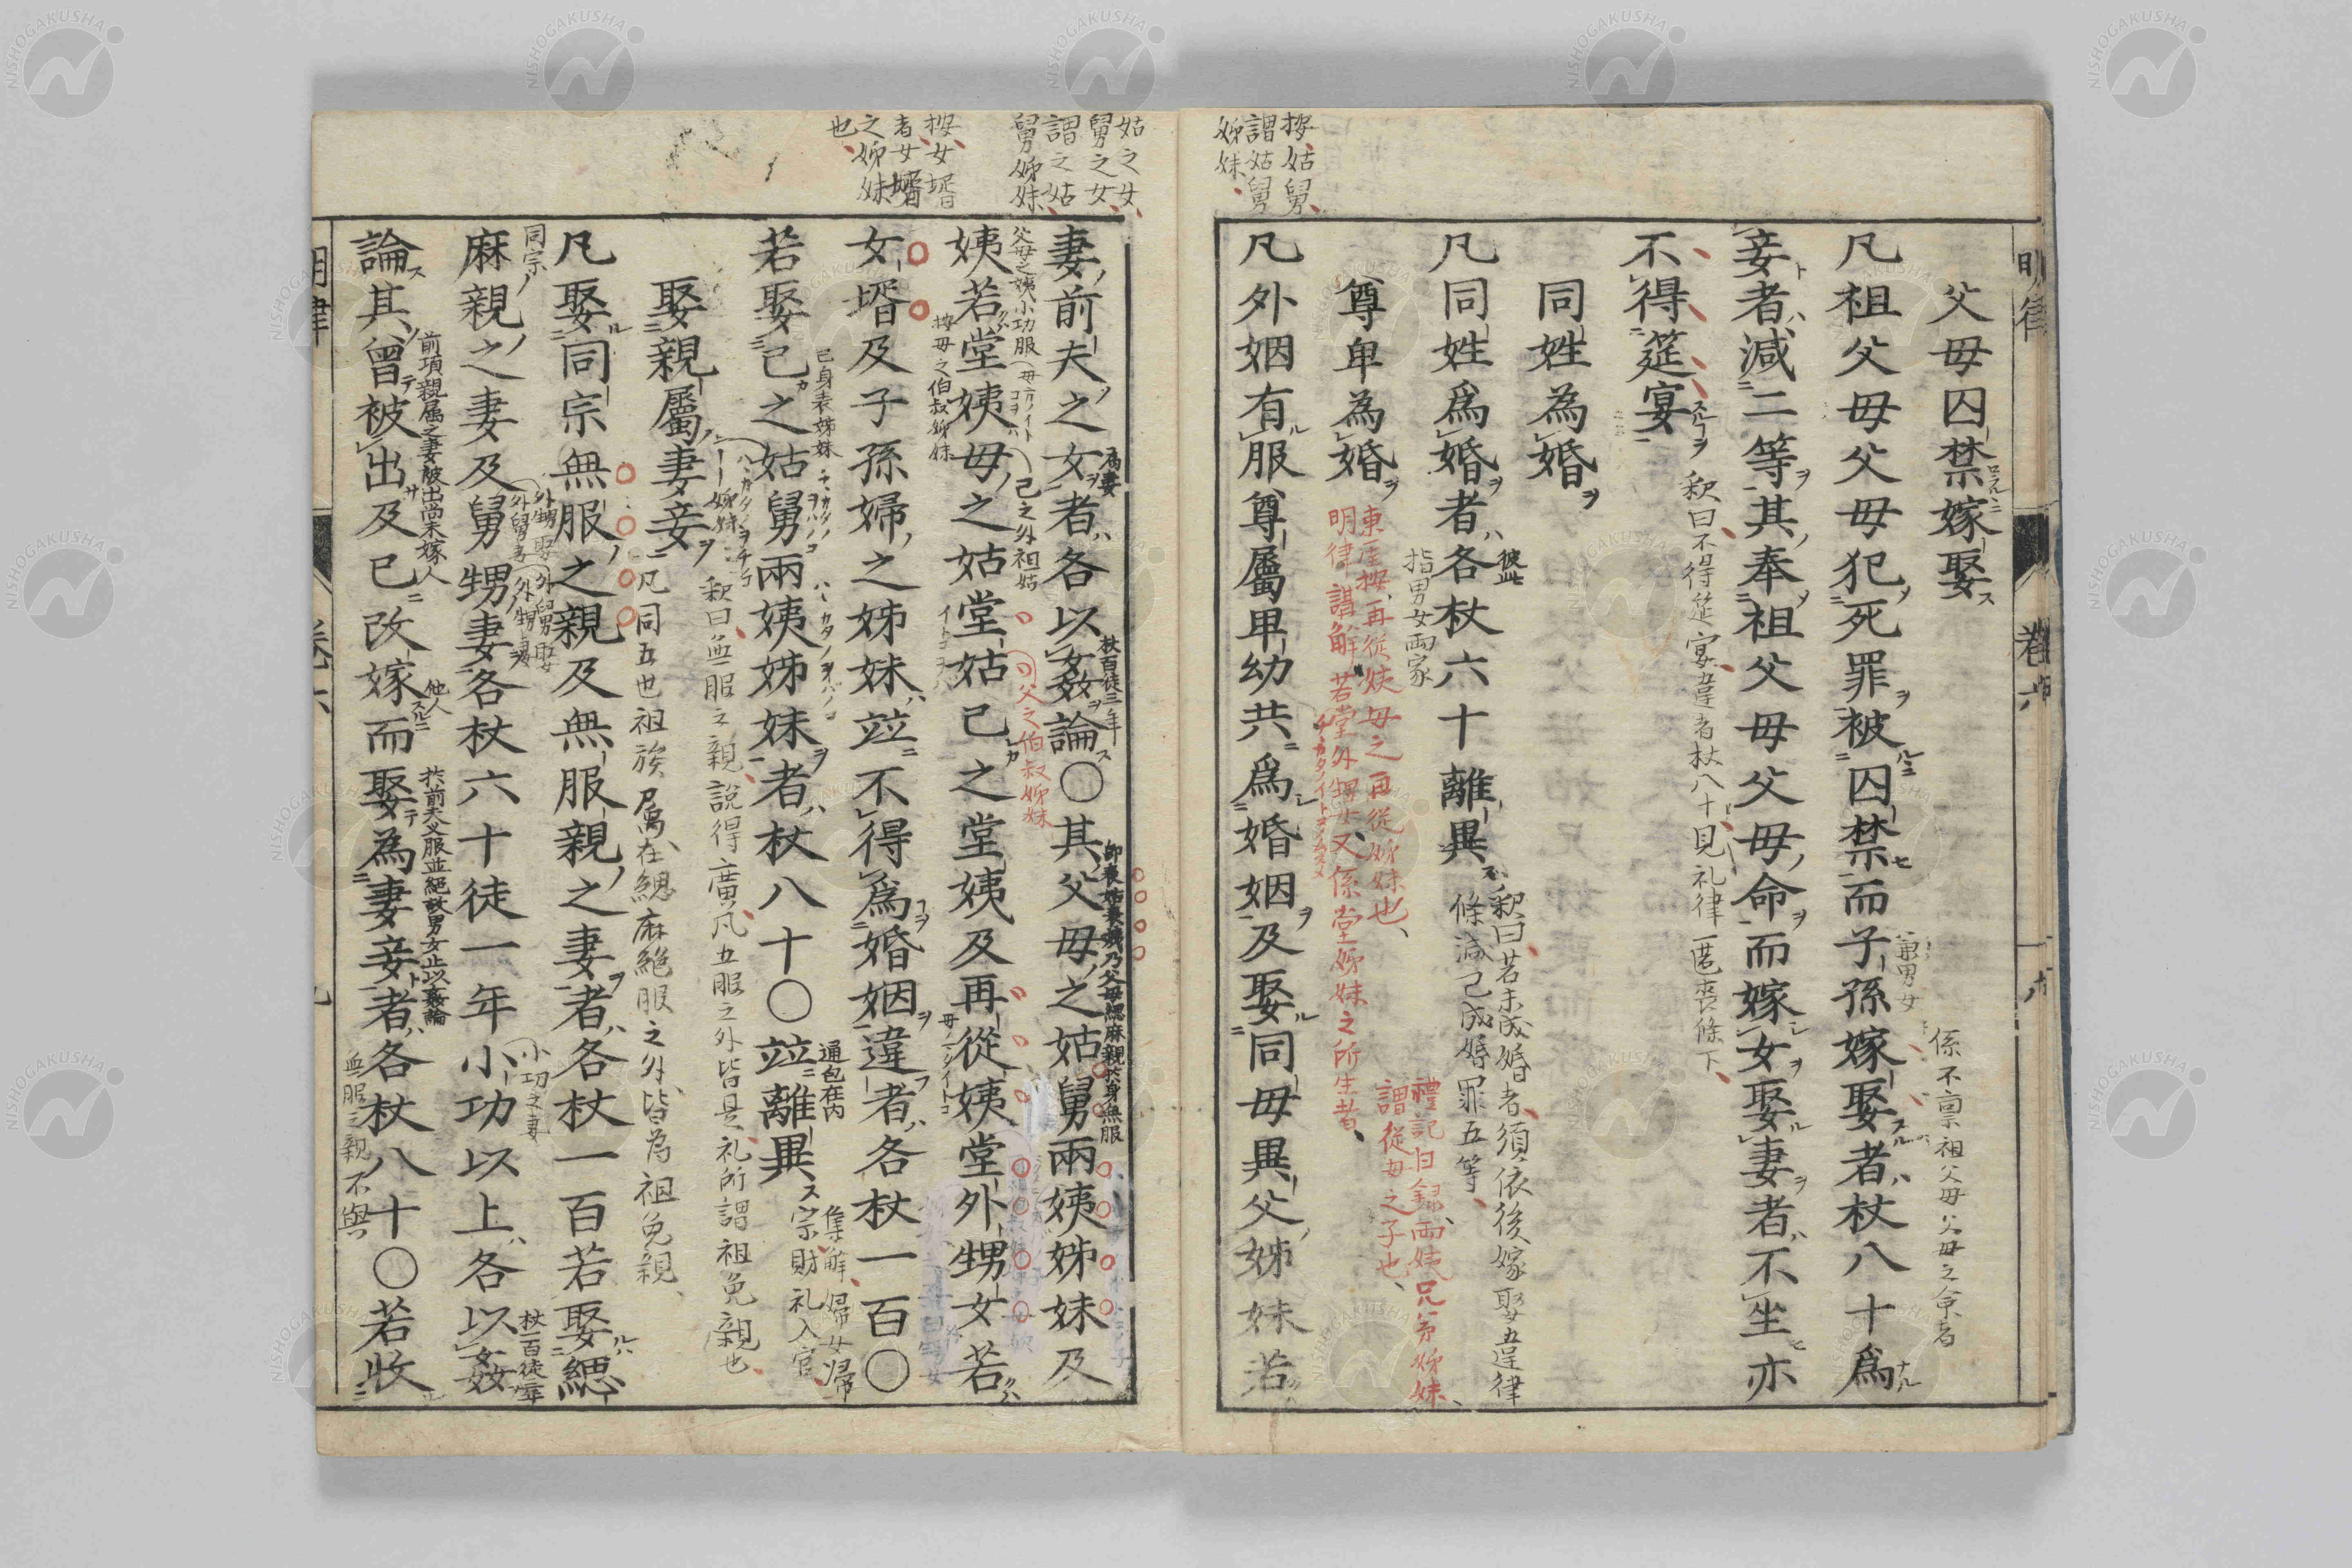 按姑舅
謂姑舅
姊妹
明律
卷六
父母囚禁嫁娶
凡祖父母父母犯死罪被囚禁而子孫嫁娶者杖八十爲
兼男女
係不禀祖父母父母之命者
妾者減二等其奉祖父母父母命而嫁女娶妻者不坐亦
不得筵宴
釈曰不得筵宴違者杖八十見礼律匿喪條下
同姓為婚
凡同姓爲婚者各杖六十離異
彼此
指男女両家
釈曰若未成婚者須依後嫁娶違律
條減已成婚罪五等
尊卑為婚
東厓按再從姨母之再從姊妹也
明律講解若堂外甥女又係堂姊妹之所生者
禮記曰録両姨兄弟姊妹
謂從母之子也
凡外姻有服尊屬卑幼共爲婚姻及娶同母異父姊妹若
姑之女
舅之女
謂之姑
舅姊妹
按女壻
者女壻
之姊妹
也
妻前夫之女者各以姦論○其父母之姑舅兩姨姊妹及
為妻
杖百徒三年
即表姑表姨乃父母緦麻親於身無服
姨若堂姨母之姑堂姑己之堂姨及再從姨堂外甥女若
父母之姨小功服
己之外祖姑
父之伯叔姊妹
女壻及子孫婦之姊妹竝不得爲婚姻違者各杖一百○
按母之伯叔姊妹
若娶己之姑舅兩姨姊妹者杖八十○竝離異
己身表姊妹
通包在内
集解婦女歸
宗財礼入官
娶親屬妻妾
釈曰無服之親説得廣凡五服之外皆是礼所謂祖免親也
凡同五世祖族属在緦麻絶服之外皆為祖免親
凡娶同宗無服之親及無服親之妻者各杖一百若娶緦
麻親之妻及舅甥妻各杖六十徒一年小功以上各以姦
同宗
小功之妻
論其曾被出及已改嫁而娶為妻妾者各杖八十○若收
前項親属之妻被出尚未嫁人
他人
於前夫义服並絕故男女止以姦論
無服之親不與
明律
卷六